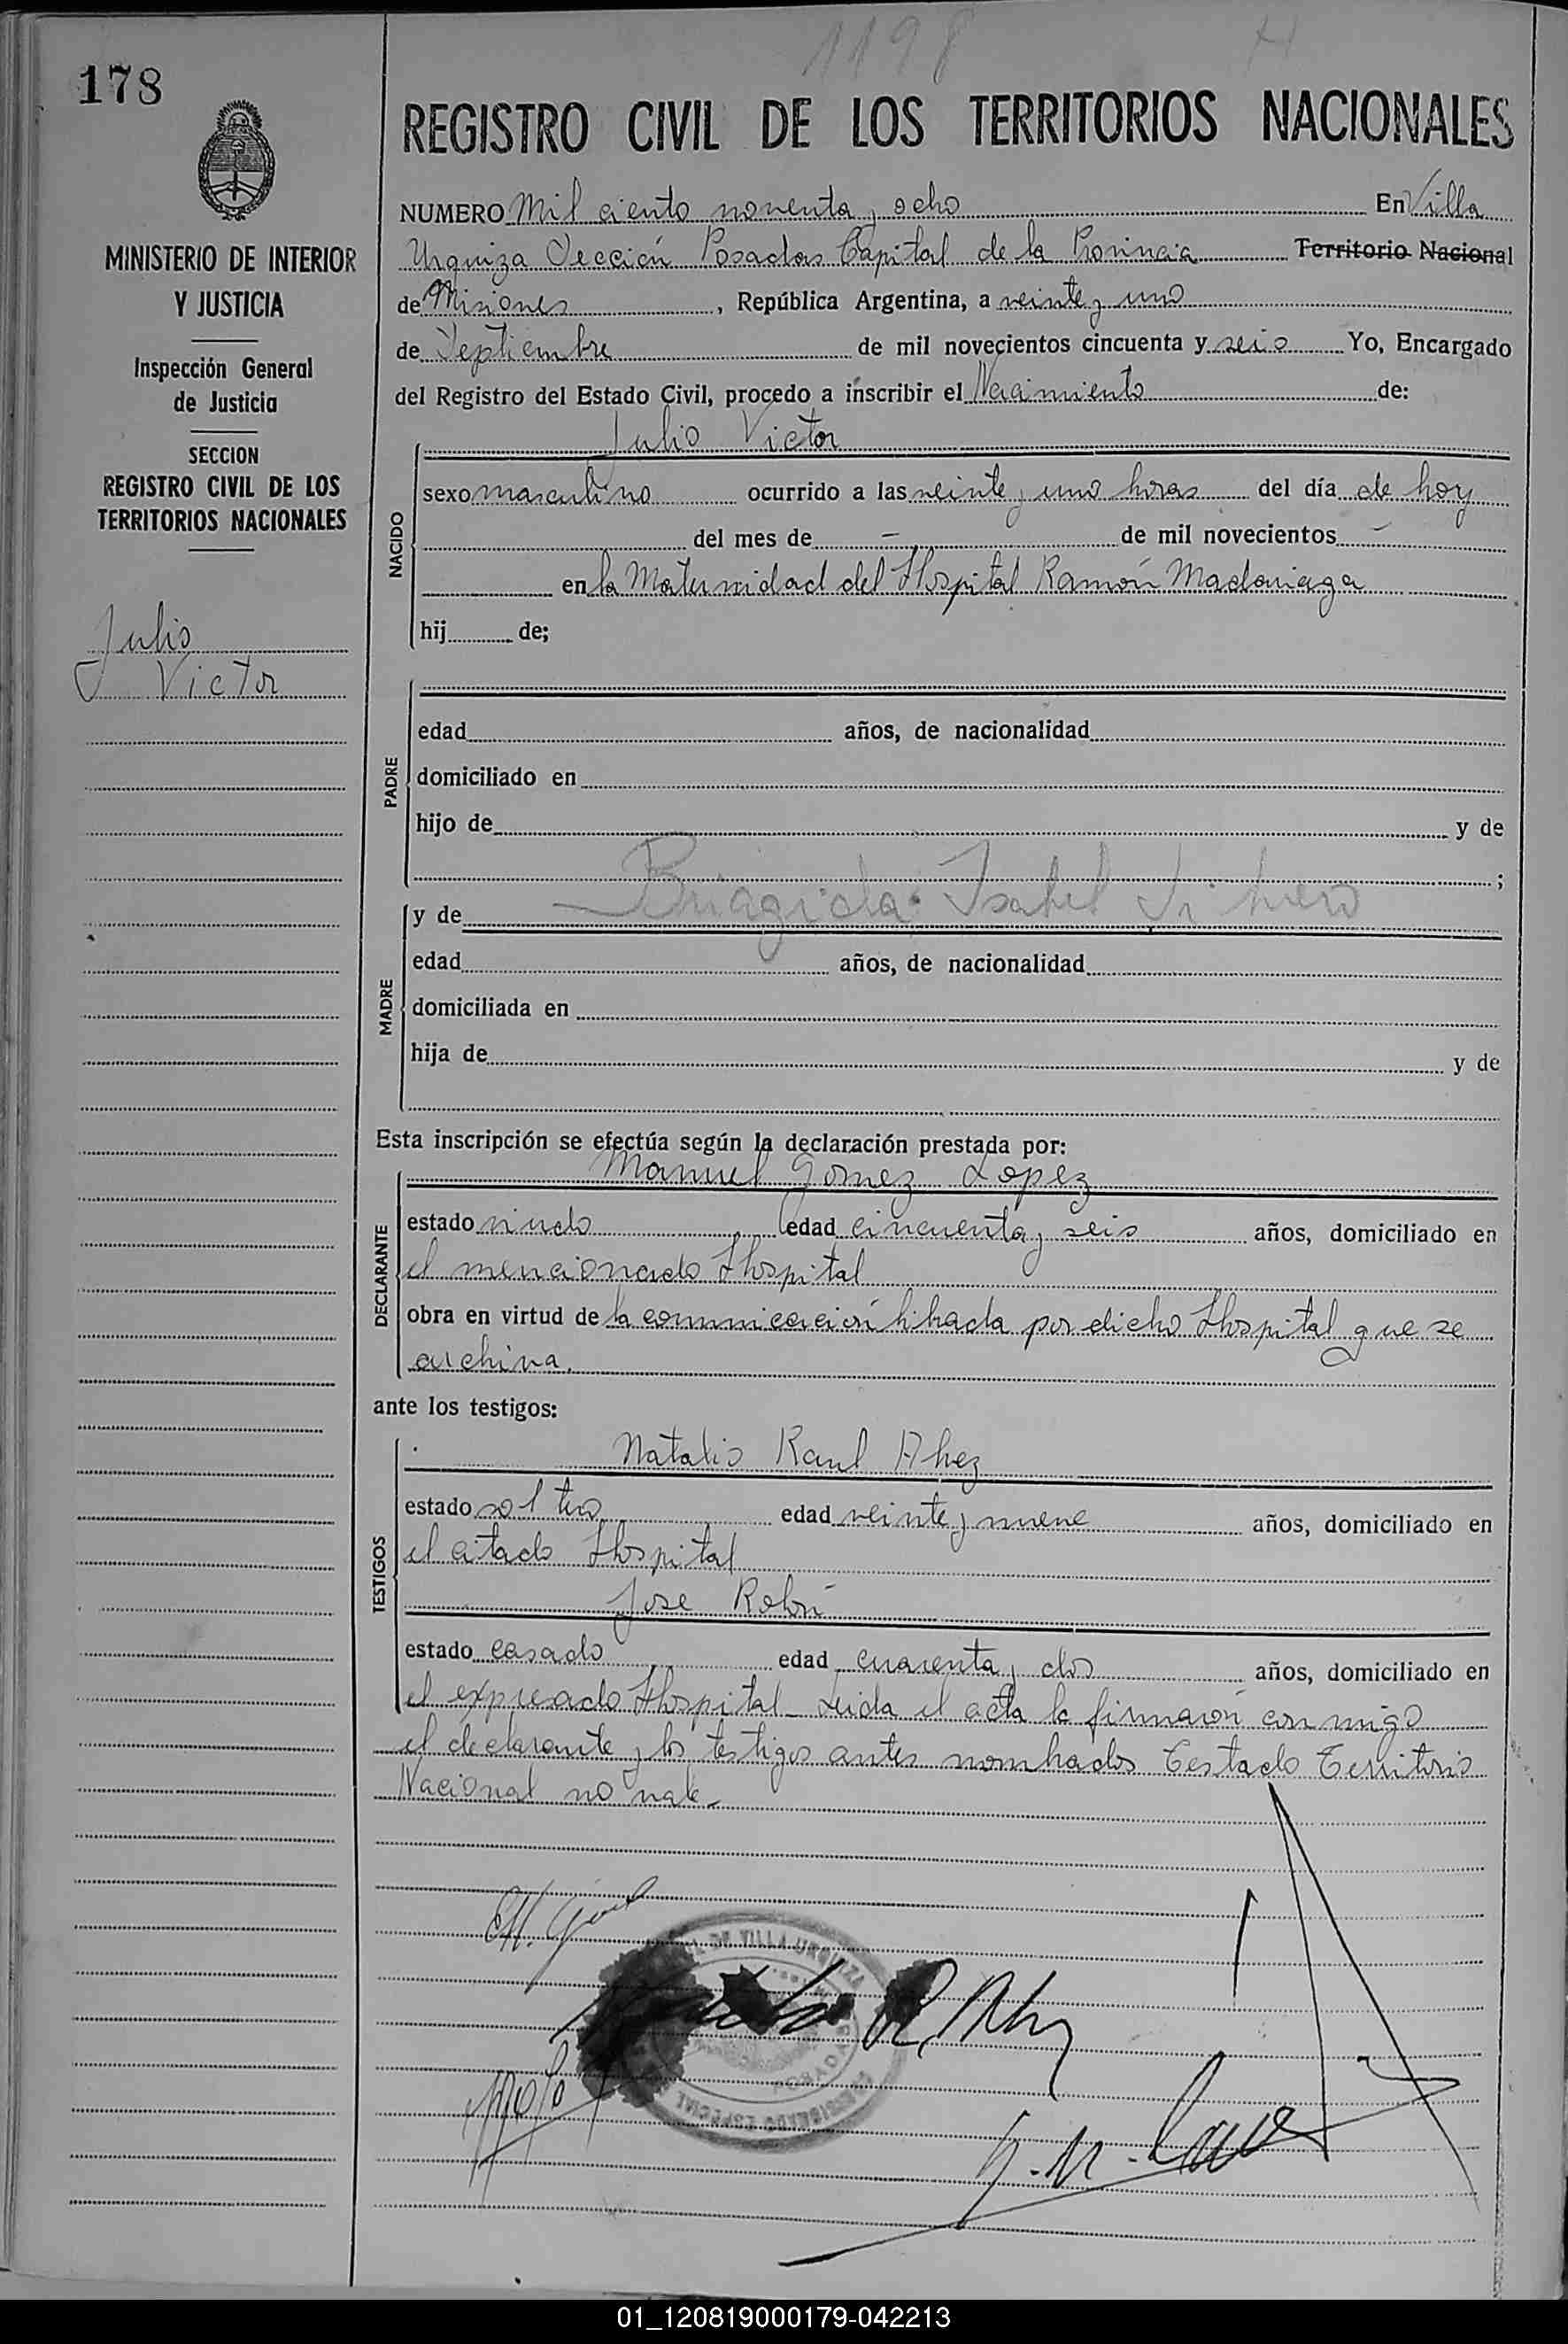 1198
H
178
REGISTRO CIVIL DE LOS TERRITORIOS NACIONALES
MINISTERIO DE INTERIOR
Y JUSTICIA
Inspección General
de Justicia
SECCION
REGISTRO CIVIL DE LOS
TERRITORIOS NACIONALES
Julio
Victor
NUMERO Mil ciento noventa y ocho En Villa
Urquiza Sección Posadas Capital de la Provincia Territorio Nacional
de Misiones, República Argentina, a veinte y uno
de Septiembre de mil novecientos cincuenta y seis Yo, Encargado
del Registro del Estado Civil, procedo a inscribir el Nacimiento de:
Julio Victor
NACIDO
sexo masculino ocurrido a las veinte y uno horas del día de hoy
del mes de - de mil novecientos -
en la Maternidad del Hospital Ramón Madariaga
hij de;
PADRE
edad años, de nacionalidad
domiciliado en
hijo de y de
;
MADRE
y de Isabel
edad años, de nacionalidad
domiciliada en
hija de y de
Esta inscripción se efectúa según la declaración prestada por:
DECLARANTE
Manuel Gomez Lopez
estado viudo edad cincuenta y seis años, domiciliado en
el mencionado Hospital
obra en virtud de la comunicación librada por dicho Hospital que se
archiva.
ante los testigos:
TESTIGOS
Natalio Raul
estado soltero edad veinte y nueve años, domiciliado en
el citado Hospital
Jose
estado casado edad cuarenta y dos años, domiciliado en
el expresado Hospital - Leida el acta la firmaron conmigo
el declarante y los testigos antes nombrados Testado Territorio
Nacional no vale -
DE VILLA URQUIZA
01_120819000179-042213